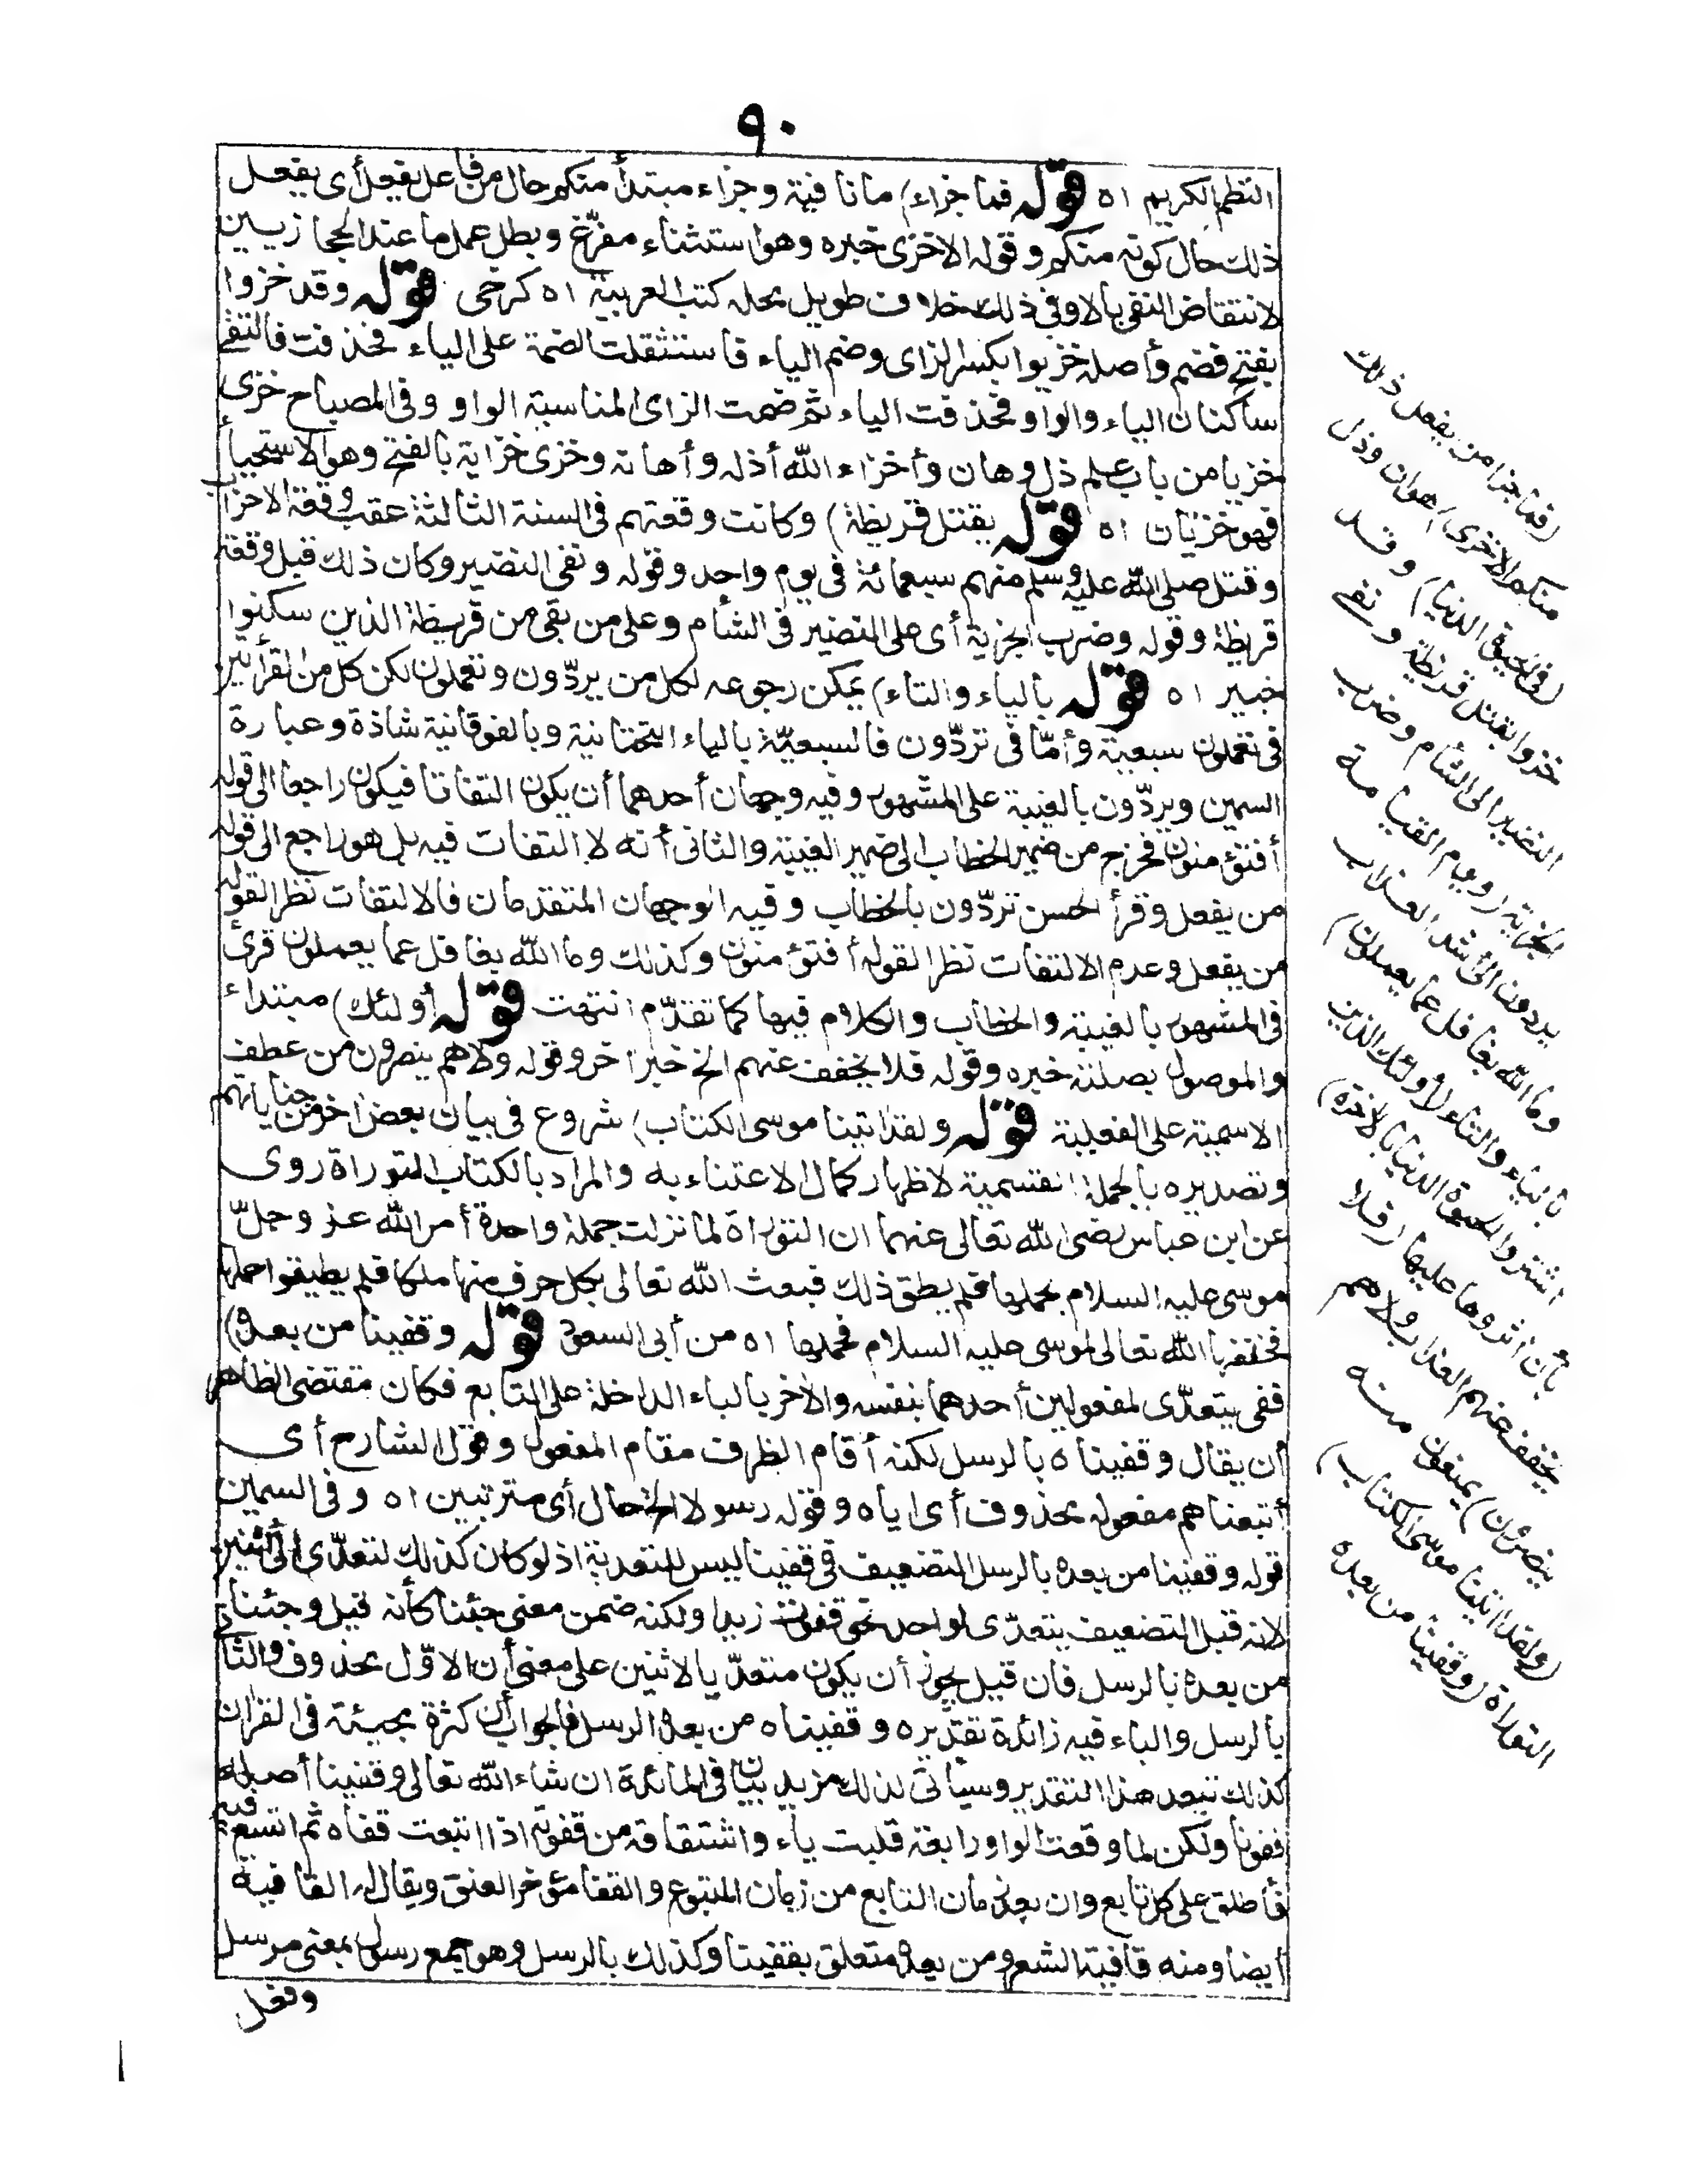 ٩٠
النظم الكريم اه قوله فما جزاء) ما نافية وجزاء مبتدأ منكم حال من فاعل يفعل أى يفعل
ذلك حال كونه منكم وقوله الاخزى خبره وهو استثناء مفرّغ وبطل عمل ما عند الحجازيين
لانتقاض النفى بالا وفى ذلك خلاف طويل محله كتب العربية اه كرخى قوله وقد خزوا
بفتح فضم وأصله خزيوا بكسر الزاى وضم الياء فاستثقلت الضمة على الياء فحذفت فالتقى
ساكنان الياء والواو فحذفت الياء ثم ضمت الزاى لمناسبة الواو وفى المصباح خزى
خزيا من باب علم ذل وهان وأخزاه الله أذله وأهانه وخزى خزاية بالفتح وهو الاستحياء
فهو خزيان اه قوله بقتل قريظة) وكانت وقعتهم فى السنة الثالثة عقب وقعة الاحزاب
وقتل صلى الله عليه وسلم منهم سبعمائة فى يوم واحد وقوله ونفى النضير وكان ذلك قبل وقعة
قريظة وقوله وضرب الجزية أى على النضير فى الشأم وعلى من بقى من قريظة الذين سكنوا
خيبر اه قوله بالياء والتاء) يمكن رجوعه لكل من يردّون وتعملون لكن كل من القرأتين
فى تعملون سبعية وأمّا فى تردّون فالسبعيّة بالياء التحتانية وبالفوقانية شاذة وعبارة
السمين ويردّون بالغيبة على المشهور وفيه وجهان أحدهما أن يكون التفاتا فيكون راجعا الى قوله
أفتؤمنون فخرج من ضمير الخطاب الى ضمير الغيبة والثانى أنه لا التفات فيه بل هو راجع الى قوله
من يفعل وقرأ الحسن تردّون بالخطاب وفيه الوجهان المتقدمان فالالتفات نظرا لقوله
من يفعل وعدم الالتفات نظرا لقوله أفتؤمنون وكذلك وما الله بغافل عما يعملون قرئ
فى المشهور بالغيبة والخطاب والكلام فيها كما تقدّم انتهت قوله أولئك) مبتداء
والموصول بصلته خبره وقوله فلا يخفف عنهم الخ خبر اخر وقوله ولا هم ينصرون من عطف
الاسمية على الفعلية قوله ولقد اتينا موسى الكتاب) شروع فى بيان بعض اخر من جناياتهم
وتصديره بالجملة القسمية لاظهار كمال الاعتناء به والمراد بالكتاب التوراة روى
عن ابن عباس رضى الله تعالى عنهما ان التوراة لما نزلت جملة واحدة أمر الله عز وجلّ
موسى عليه السلام بحملها فلم يطق ذلك فبعث الله تعالى بكل حرف منها ملكا فلم يطيقوا حملها
فخففها الله تعالى لموسى عليه السلام فحملها اه من أبى السعود قوله وقفينا من بعده)
قفى يتعدّى لمفعولين أحدهما بنفسه والاخر بالباء الداخلة على التابع فكان مقتضى الظاهر
أن يقال وقفيناه بالرسل لكنه أقام الظرف مقام المفعول وقول الشارح أى
أتبعناهم مفعوله محذوف أى اياه وقوله رسولا الخ حال أى مترتبين اه وفى السمين
قوله وقفينا من بعده بالرسل التضعيف فى قفينا ليس للتعدية اذ لو كان كذلك لتعدّى الى اثنين
لانه قبل التضعيف يتعدّى لواحد نحو قفوت زيدا ولكنه ضمن معنى جئنا كأنه قيل وجئنا
من بعده بالرسل فان قيل يجوز أن يكون متعدّيا لاثنين على معنى أن الاوّل محذوف والثانى
بالرسل والباء فيه زائدة تقديره وقفيناه من بعده الرسل فالجواب أن كثرة مجيئه فى القران
كذلك تبعد هذا التقدير وسيأتى لذلك مزيد بيان فى المائدة ان شاء الله تعالى وقفينا أصله
قفونا ولكن لما وقعت الواو رابعة قلبت ياء واشتقاقه من قفوته اذا اتبعت قفاه ثم اتسع فيه
فأطلق على كل تابع وان بعد زمان التابع من زمان المتبوع والقفا مؤخر العنق ويقال له القافية
أيضا ومنه قافية الشعر ومن بعده متعلق بقفينا وكذلك بالرسل وهو جمع رسول بمعنى مرسل
وفعل
(فما جزاء من يفعل ذلك
منكم الاخزى) هوان وذل
(فى الحيوة الدنيا) وقد
خزوا بقتل قريظة ونفى
النضير الى الشأم وضرب
الجزية (ويوم القيامة
يردون الى أشد العذاب
وما الله بغافل عما يعملون)
بالياء والتاء (أولئك الذين
اشتروا الحيوة الدنيا بالاخرة)
بأن اثروها عليها (فلا
يخفف عنهم العذاب ولا هم
ينصرون) يمنعون منه
(ولقد اتينا موسى الكتاب)
التوراة (وقفينا من بعده